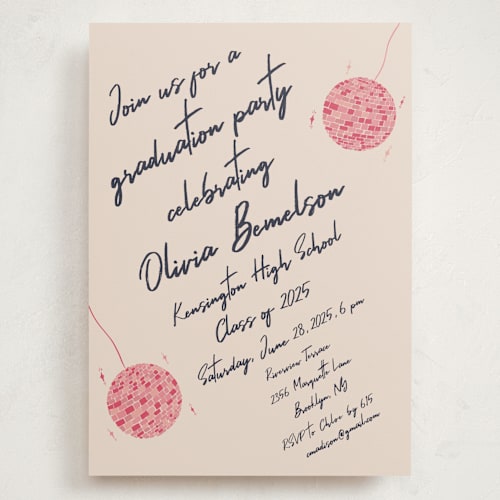 Join us for a
graduation party
celebrating
Olivia Bemelson
Kensington High School
Class of 2025
Saturday, June 28, 2025, 6 pm
Riverview Terrace
2356 Marquette Lane
Brooklyn, NJ
RSVP to Chloe by 6.15
cmadison@gmail.com